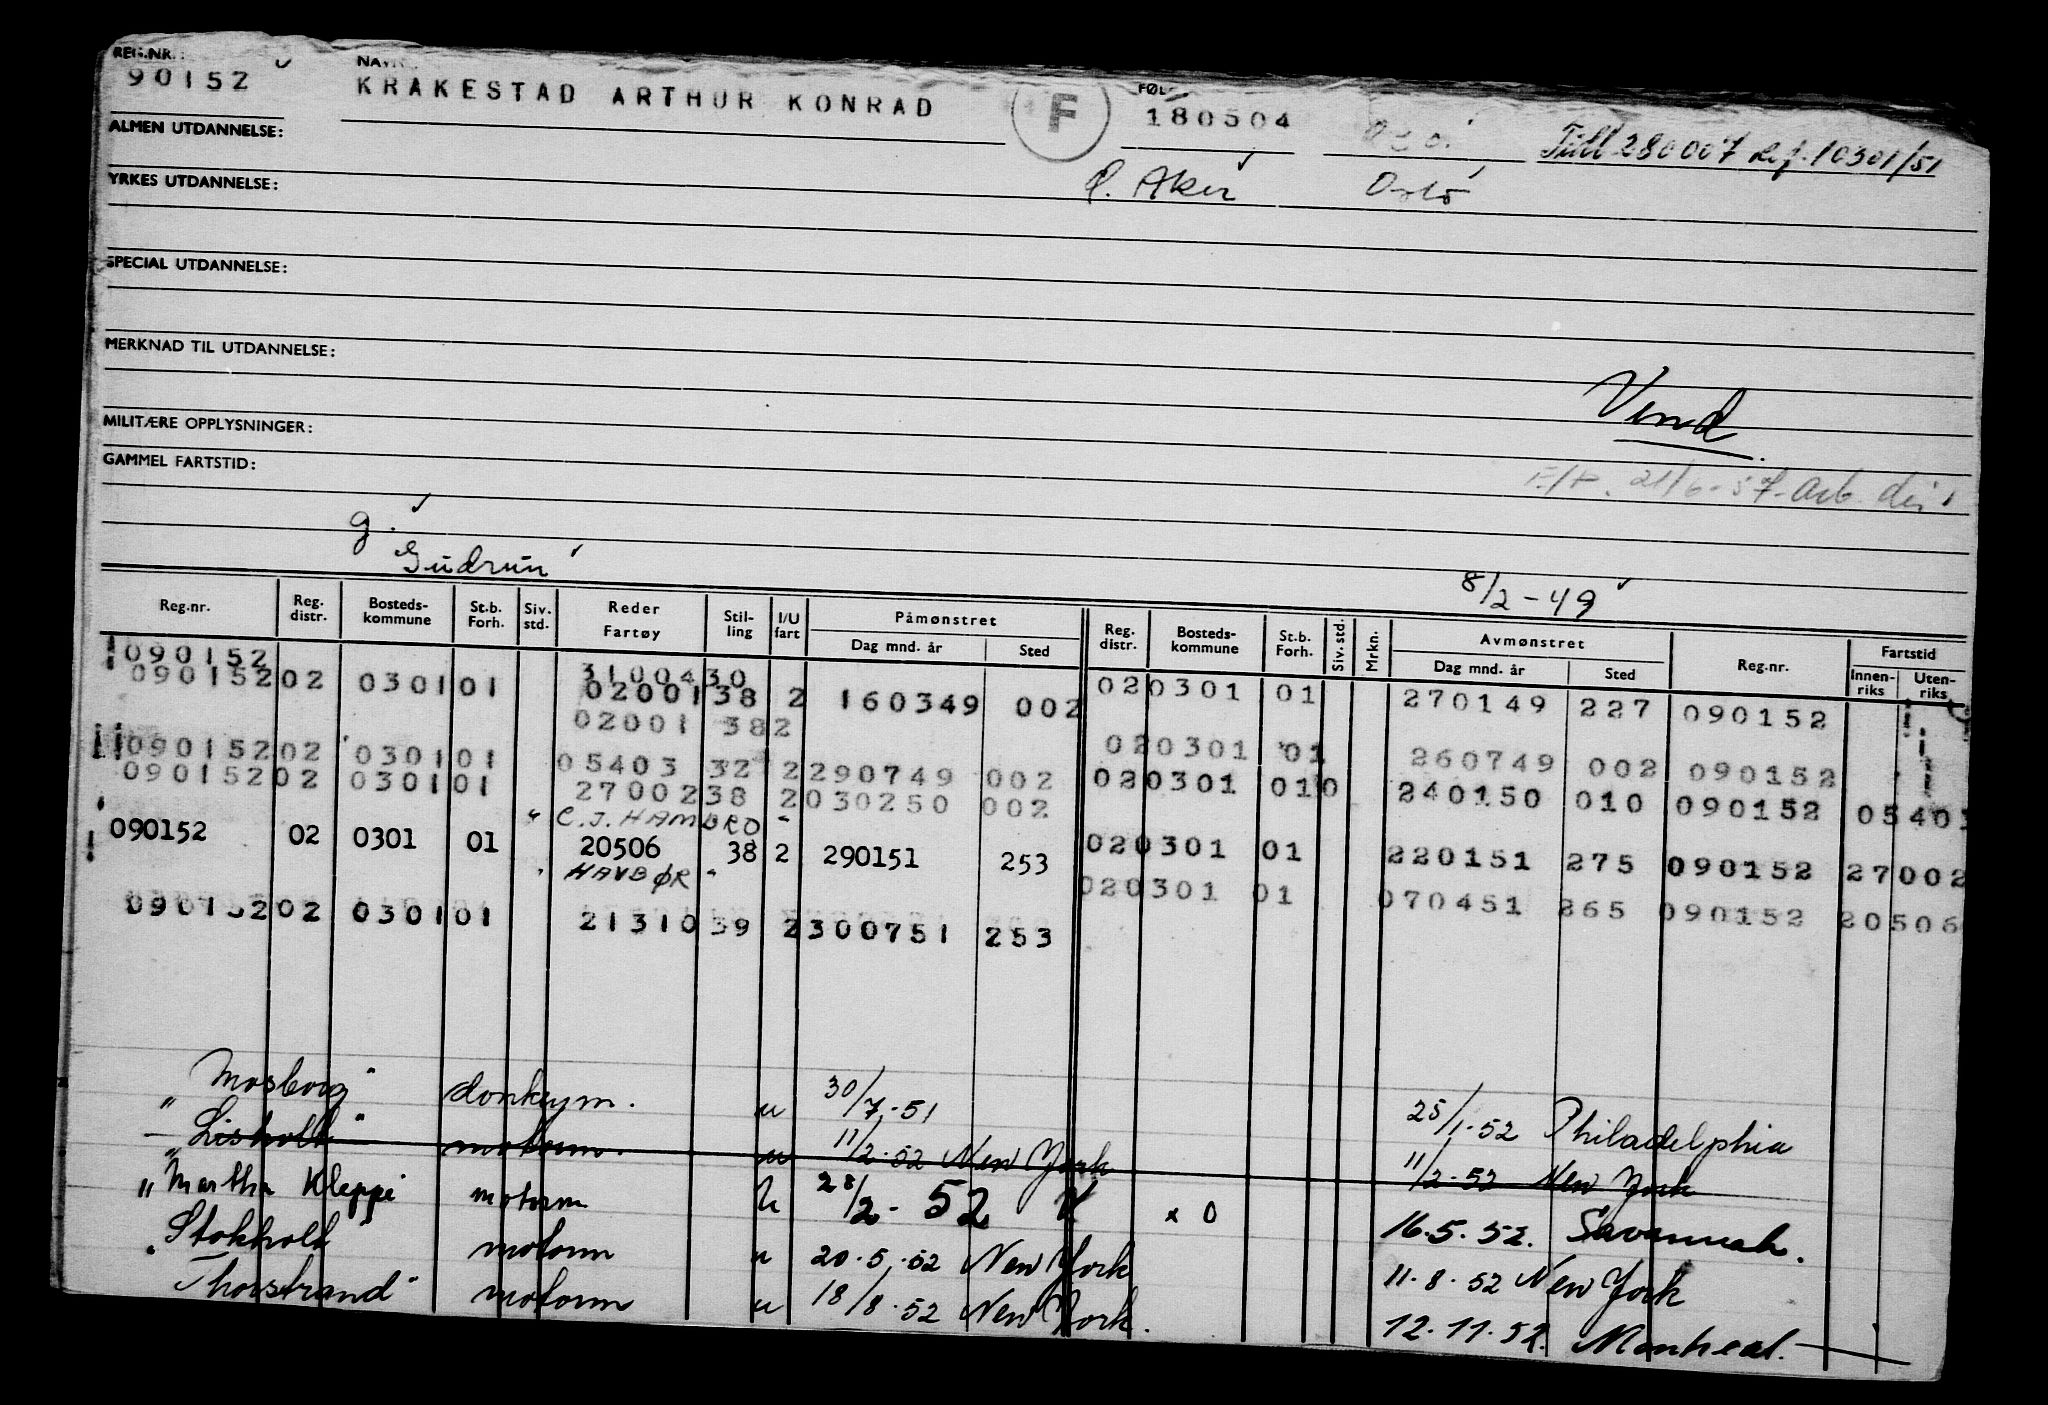 REG.NR.: NAVN
90152 KRAKESTAD ARTHUR KONRAD F 180504
ALMEN UTDANNELSE: Till 280007 Ref. 10301/51
YRKES UTDANNELSE: Ø. Aker Oslo
SPECIAL UTDANNELSE:
MERKNAD TIL UTDANNELSE:
Vend
MILITÆRE OPPLYSNINGER:
GAMMEL FARTSTID:
21/6-57 Arb. dir.
g.
Gudrun 8/2-49
Reg.nr. Reg. distr. Bosteds-kommune St.b. Forh. Siv. std. Reder Fartøy Stil-ling I/U fart Påmønstret Dag mnd. år Sted Reg. distr. Bosteds-kommune St.b. Forh. Siv. std. Mrkn. Avmønstret Dag mnd. år Sted Reg.nr. Fartstid Innen-riks Uten-riks
090152 3100430
090152 02 0301 01 02001 38 2 160349 002 020301 01 270149 227 090152
02001 382
090152 02 0301 01 05403 32 2 290749 002 020301 01 260749 002 090152
090152 02 0301 01 27002 38 2 030250 002 020301 010 240150 010 090152 05403
" C.J. HAMBRO "
090152 02 0301 01 20506 38 2 290151 253 020301 01 220151 275 090152 27002
HAVBØR " 020301 01 070451 265 090152 20506
090152 02 0301 01 21310 39 2 300751 253
"Mosborg" donkeym. u 30/7-51 25/1-52 Philadelphia
"Lisholt" motorm. u 11/2-52 New York 11/2-52 New York
"Martha Kleppe motorm u 28/2-52 x 0 16.5.52. Savannah.
"Stokholt motorm u 20-5-52 New York 11-8-52 New York
Thorstrand" motorm u 18/8-52 New York. 12.11.52. Montreal.